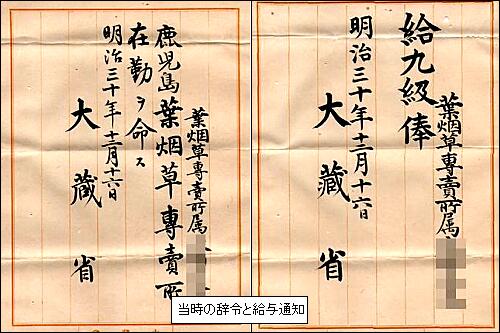 葉烟草專賣所属
鹿児島葉烟草專賣所
在勤ヲ命ス
明治三十年十二月十六日
大藏省
葉烟草專賣所属
給九級俸
明治三十年十二月十六日
大藏省
当時の辞令と給与通知